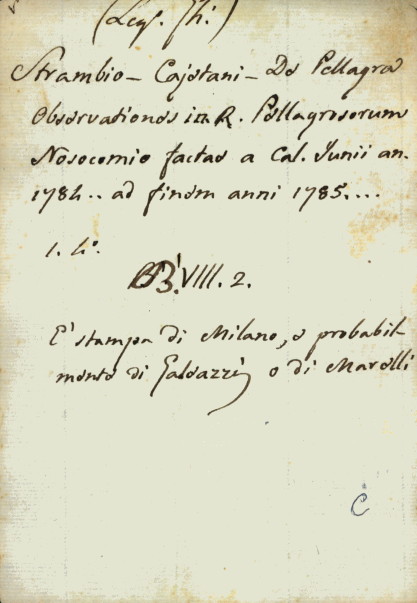 (Leg. Gh.)
Strambio - Cajetani - De Pellagra
Observationes in R. Pellagrosorum
Nosocomio factae a Cal. Junii an.
1784.. ad finem anni 1785....
1. 4°.
B.VIII. 2.
E' stampa di Milano, e probabil
mente di Galeazzi o di Marelli
C